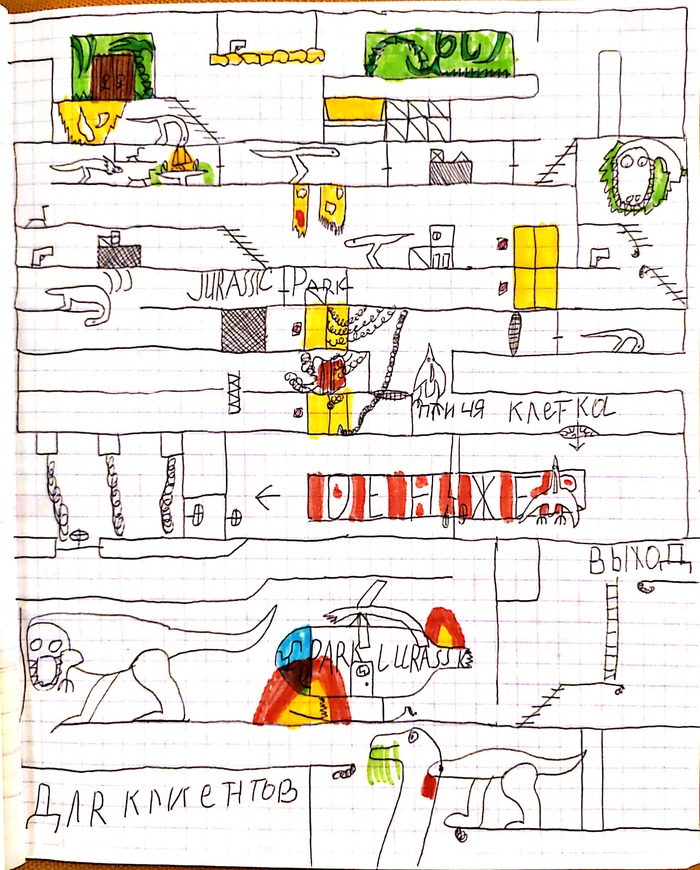 JURASSIC PARK
птичя клетка
DЕНЖЕ
ВЫХОД
PARK JURASSK
ДЛЯ КЛИЕНТОВ